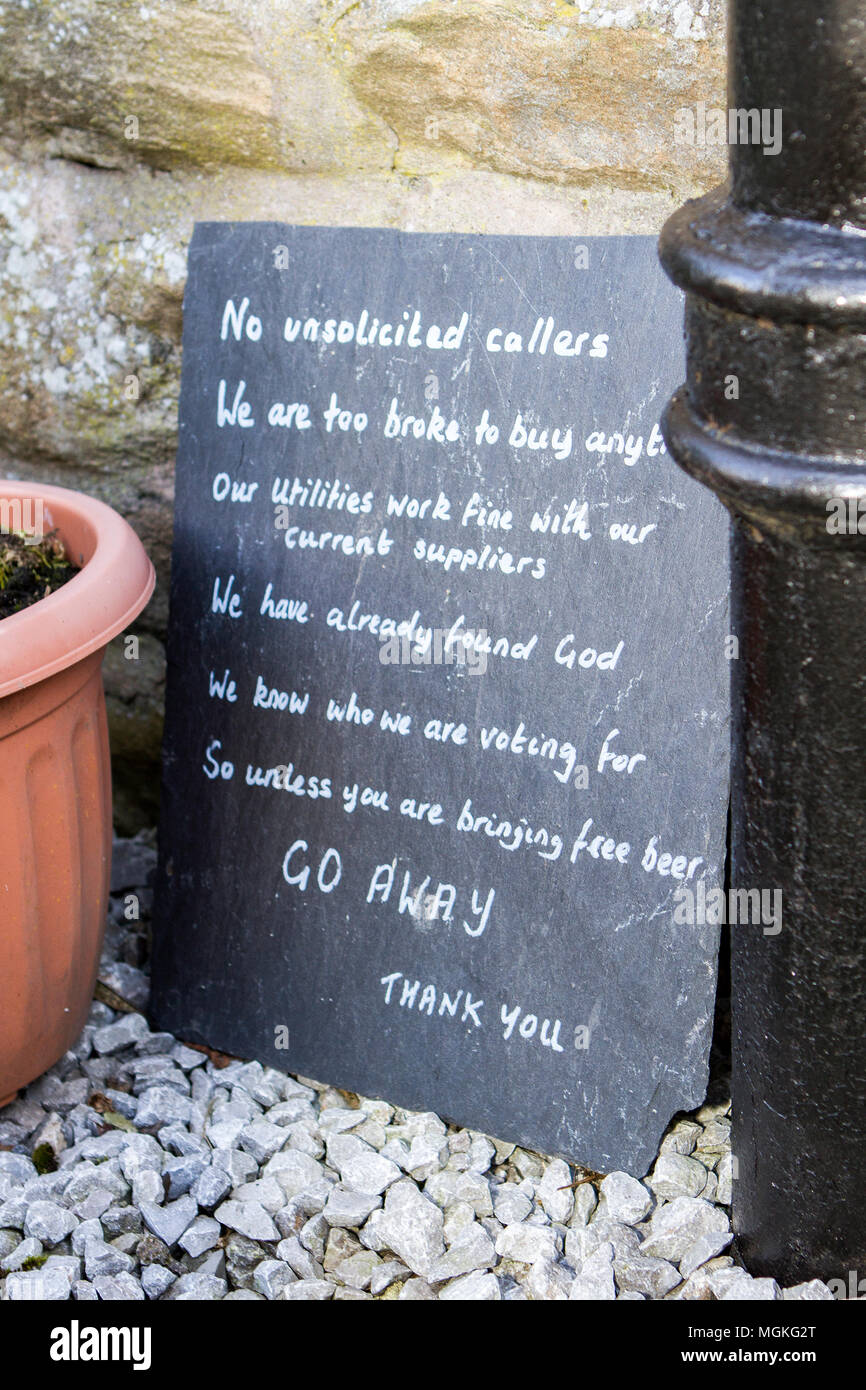 No unsolicited callers
We are too broke to buy anyt
Our Utilities work fine with our
current suppliers
We have already found God
We know who we are voting for
So unless you are bringing free beer
GO AWAY
THANK YOU
alamy
Image ID: MGKG2T
www.alamy.com